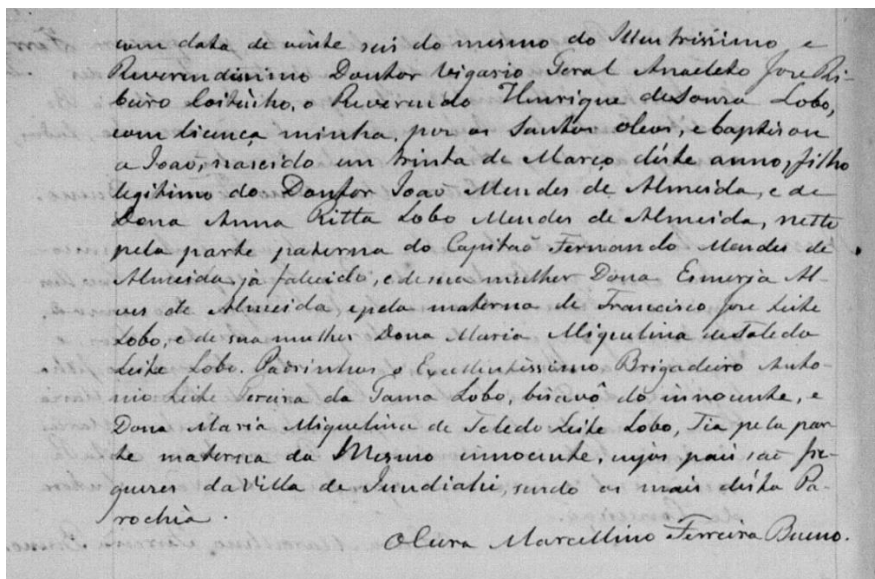 com data de vinte seis do mesmo do Illmentrissimo e
Reverendissimo Doutor Vigario Geral Anacleto Jose Ri-
beiro Coitinho, o Reverendo Henrique de Souza Lobo,
com licença minha, por os Santos oleos, e baptisou
a João, nascido em trinta de Março déste anno, filho
legitimo do Doutor João Mendes de Almeida, e de
Dona Anna Ritta Lobo Mendes de Almeida, netto
pela parte paterna do Capitaõ Fernando Mendes de
Almeida já falecido, e de sua mulher Dona Esmeria Al-
ves de Almeida, e pela materna de Francisco Jose Leite
Lobo, e de sua mulher Dona Maria Miquelina de Toledo
Leite Lobo. Padrinhos o Excellentissimo Brigadeiro Anto-
nio Leite Pereira da Gama Lobo, bisavô do innocente, e
Dona Maria Miquelina de Toledo Leite Lobo, Tia pela par-
te materna do Mesmo innocente, cujos pais saõ fre-
guezes da Villa de Jundiahi, sendo os mais désta Pa-
rochia.
O Cura Marcellino Ferreira Bueno.